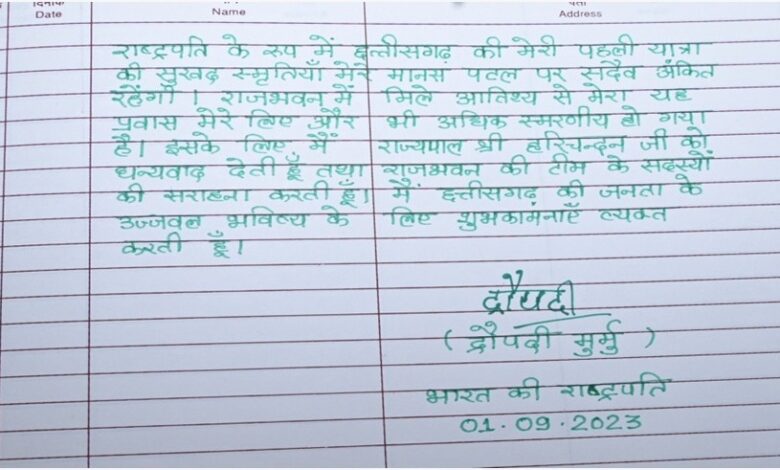 दिनांक नाम पता
Date Name Address
राष्ट्रपति के रूप में छत्तीसगढ़ की मेरी पहली यात्रा
की सुखद स्मृतियाँ मेरे मानस पटल पर सदैव अंकित
रहेंगी। राजभवन में मिले आतिथ्य से मेरा यह
प्रवास मेरे लिए और भी अधिक स्मरणीय हो गया
है। इसके लिए मैं राज्यपाल श्री हरिचन्दन जी को
धन्यवाद देती हूँ तथा राजभवन की टीम के सदस्यों
की सराहना करती हूँ। मैं छत्तीसगढ़ की जनता के
उज्जवल भविष्य के लिए शुभकामनाएँ व्यक्त
करती हूँ।
द्रौपदी
( द्रौपदी मुर्मु )
भारत की राष्ट्रपति
01.09.2023